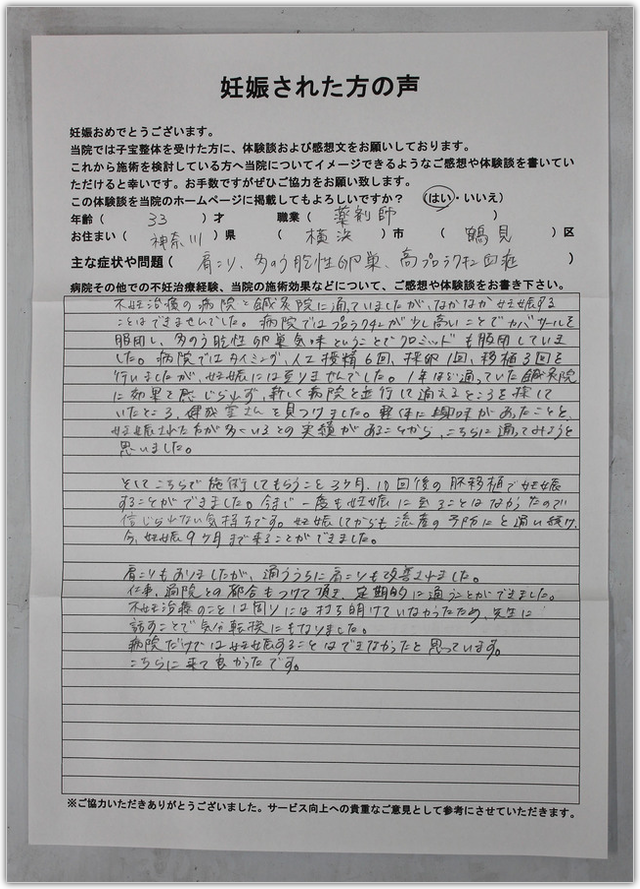 妊娠された方の声
妊娠おめでとうございます。
当院では子宝整体を受けた方に、体験談および感想文をお願いしております。
これから施術を検討している方へ当院についてイメージできるようなご感想や体験談を書いてい
ただけると幸いです。お手数ですがぜひご協力をお願い致します。
この体験談を当院のホームページに掲載してもよろしいですか？　（はい・いいえ）
年齢（　33　）才　職業（　薬剤師　）
お住まい（　神奈川　）県　（　横浜　）市　（　鶴見　）区
主な症状や問題（　肩こり、多のう胞性卵巣、高プロラクチン血症　）
病院その他での不妊治療経験、当院の施術効果などについて、ご感想や体験談をお書き下さい。
不妊治療の病院と鍼灸院に通っていましたが、なかなか妊娠する
ことはできませんでした。病院ではプロラクチンが少し高いことでカバサールを
服用し、多のう胞性卵巣気味ということでクロミッドも服用していま
した。病院ではタイミング、人工授精6回、採卵1回、移植3回を
行いましたが、妊娠には至りませんでした。1年ほど通っていた鍼灸院
に効果を感じられず、新しく病院と並行して通えるところを探して
いたところ、健成堂さんを見つけました。整体に興味があったことと、
妊娠された方が多くいるとの実績があることから、こちらに通ってみようと
思いました。
そしてこちらで施術してもらうこと3ヶ月、10回後の胚移植で妊娠
することができました。今まで一度も妊娠に至ることはなかったので
信じられない気持ちです。妊娠してからも流産の予防にと通い続け、
今、妊娠9ヶ月まで来ることができました。
肩こりもありましたが、通ううちに肩こりも改善されました。
仕事、病院との都合もつけて頂き、定期的に通うことができました。
不妊治療のことは周りには打ち明けていなかったため、先生に
話すことで気分転換にもなりました。
病院だけでは妊娠することはできなかったと思っています。
こちらに来て良かったです。
※ご協力いただきありがとうございました。サービス向上への貴重なご意見として参考にさせていただきます。